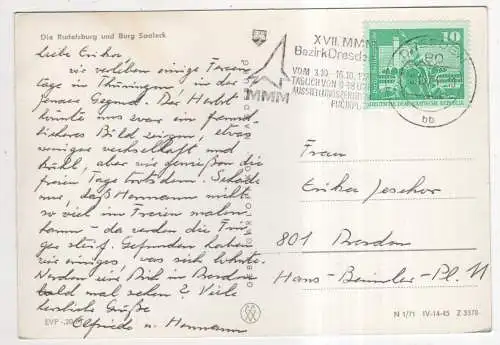 Die Rudelsburg und Burg Saaleck
Liebe Erika,
wir verleben einige Ferien-
tage in Thüringen, in der
Jenaer Gegend. Der Herbst
könnte uns zwar ein freund-
licheres Bild zeigen, etwas
weniger wechselhaft und
kühl, aber wir genießen die
freien Tage trotzdem. Schade
nur, daß Hermann nicht
so viel im Freien malen
kann – da werden die Fin-
ger steif. Gefunden haben
wir einiges, was sich lohnte.
Werden wir Dich in Dresden
bald mal sehen? Viele
herzliche Grüße
Elfriede u. Hermann
EVP
XVII. MMM
Bezirk Dresden
VOM 3.10. - 16.10.
TÄGLICH VON
AUSSTELLUNGSZENTRUM
MMM
10
DEUTSCHE DEMOKRATISCHE REPUBLIK
bb
Frau
Erika Jeschor
801 Dresden
Hans-Beimler-Pl. 11
N 1/71 IV-14-45 Z 3578